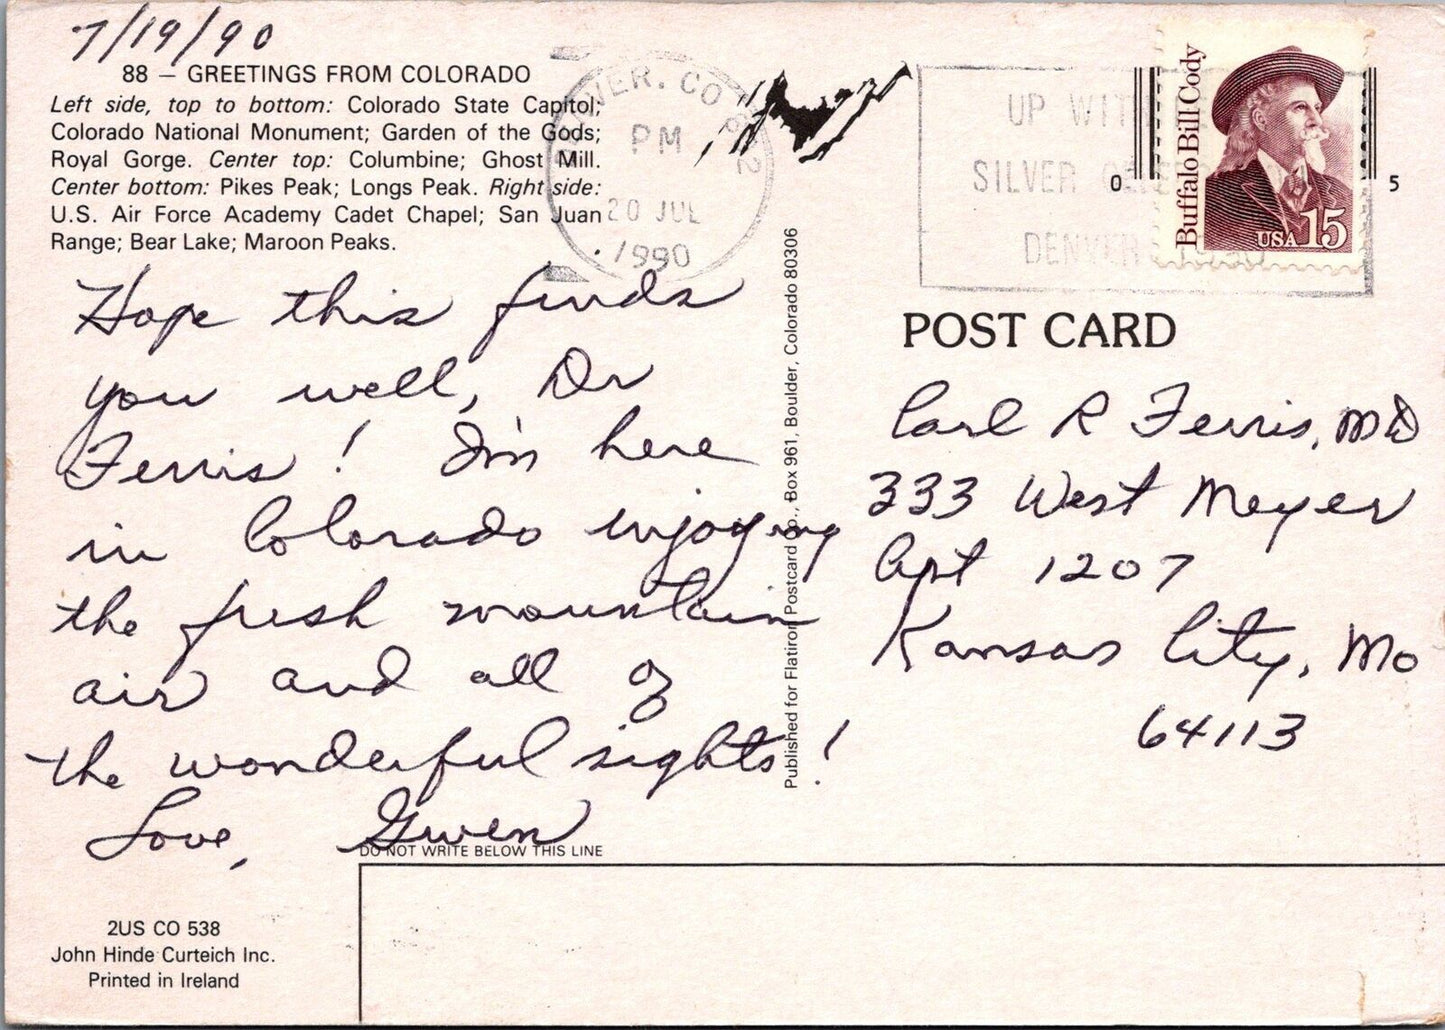 7/19/90
88 — GREETINGS FROM COLORADO
Left side, top to bottom: Colorado State Capitol;
Colorado National Monument; Garden of the Gods;
Royal Gorge. Center top: Columbine; Ghost Mill.
Center bottom: Pikes Peak; Longs Peak. Right side:
U.S. Air Force Academy Cadet Chapel; San Juan
Range; Bear Lake; Maroon Peaks.
Hope this finds
you well, Dr
Ferris! I'm here
in Colorado injoying
the fresh mountain
air and all of
the wonderful sights!
Love, Gwen
DO NOT WRITE BELOW THIS LINE
2US CO 538
John Hinde Curteich Inc.
Printed in Ireland
DENVER. CO 802
PM
20 JUL
1990
Published for Flatiron Postcard Co., Box 961, Boulder, Colorado 80306
UP WITH
SILVER
DENVER
0 5
Buffalo Bill Cody
USA 15
POST CARD
Carl R Ferris, MD
333 West Meyer
Apt 1207
Kansas City, Mo
64113